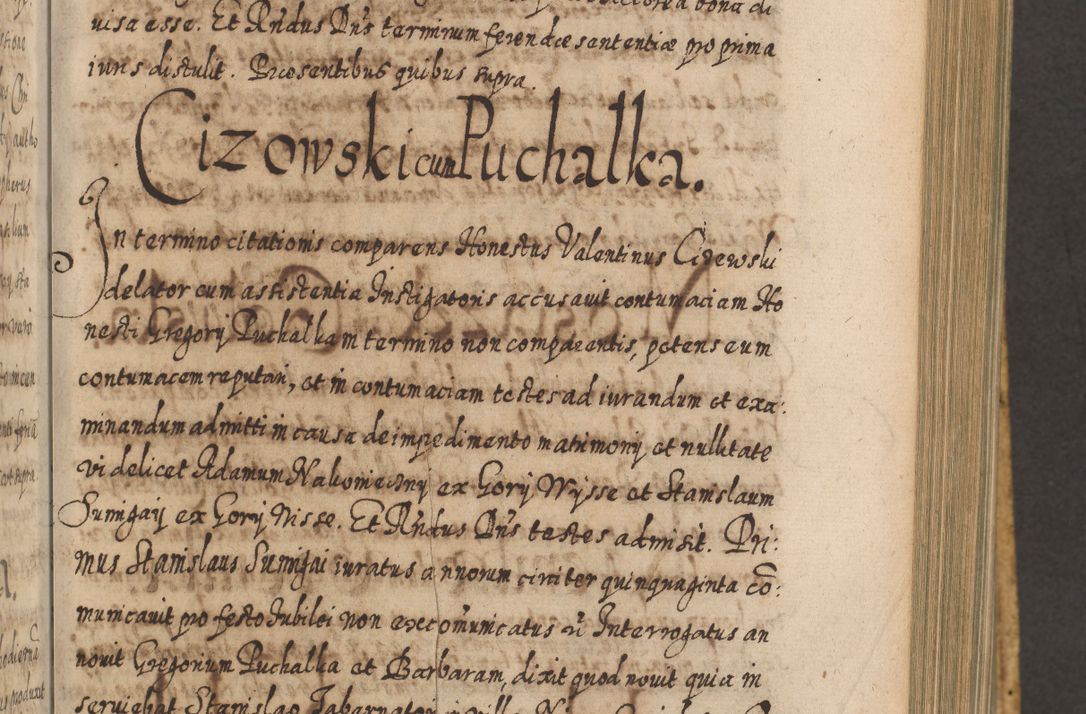 visa esse. Et Rńdus Dńs terminum ferendæ sententiæ pro prima
iuris distulit. Præsentibus quibus supra.
Cizowski cum Puchalka.
In termino citationis comparens Honestus Valentinus Cizewski
delator cum assistentia Instigatoris accusavit contumaciam Ho
nesti Gregorij Puchalka in termino non comparentis, petens eum
contumacem reputari, et in contumaciam testes ad iurandum et exa:
minandum admitti in causa de impedimento matrimonij et nullitate
videlicet Adamum Nakonieczny ex Gory Wysse et Stanislaum
Sunigaij ex Gory Nisse. Et Rńdus Dńs testes admisit. Pri:
mus Stanislaus Sunigai iuratus annorum circiter quinquaginta cō:
municavit pro festo Iubilei non excōmunicatus &c Interrogatus an
novit Gregorium Puchalka et Barbaram, dixit quod novit quia in
serviebat Stanislao
autho
pherus
vero
feriā
supra
produxit